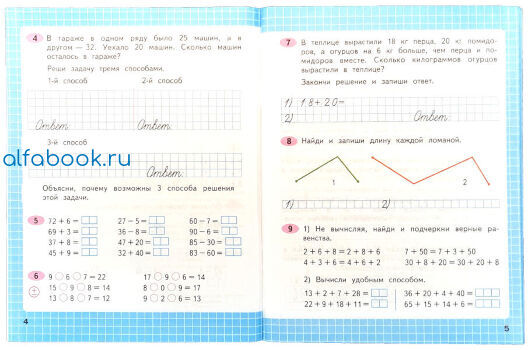 4 В гараже в одном ряду было 25 машин, и в
другом — 32. Уехало 20 машин. Сколько машин
осталось в гараже?
Реши задачу тремя способами.
1-й способ 2-й способ
Ответ: Ответ:
3-й способ
alfabook.ru
Ответ:
Объясни, почему возможны 3 способа решения
этой задачи.
5 72 + 6 = 27 − 5 = 60 − 7 =
69 + 3 = 36 − 8 = 90 − 6 =
37 + 8 = 47 + 20 = 85 − 30 =
45 + 9 = 32 + 40 = 83 − 60 =
6 9 6 7 = 22 17 9 6 = 14
15 9 8 = 14 8 0 9 = 17
13 8 7 = 12 9 2 6 = 13
4
7 В теплице вырастили 18 кг перца, 20 кг помидо-
ров, а огурцов на 6 кг больше, чем перца и по-
мидоров вместе. Сколько килограммов огурцов
вырастили в теплице?
Закончи решение и запиши ответ.
1) 18+20=
2) Ответ:
8 Найди и запиши длину каждой ломаной.
1 2
1) 2)
9 1) Не вычисляя, найди и подчеркни верные ра-
венства.
2 + 6 + 8 = 2 + 8 + 6 7 + 50 = 7 + 3 + 50
4 + 3 + 6 = 4 + 6 + 2 30 + 8 + 20 = 30 + 20 + 8
2) Вычисли удобным способом.
13 + 2 + 7 + 28 = 36 + 20 + 4 + 40 =
22 + 9 + 18 + 11 = 65 + 15 + 14 + 6 =
5